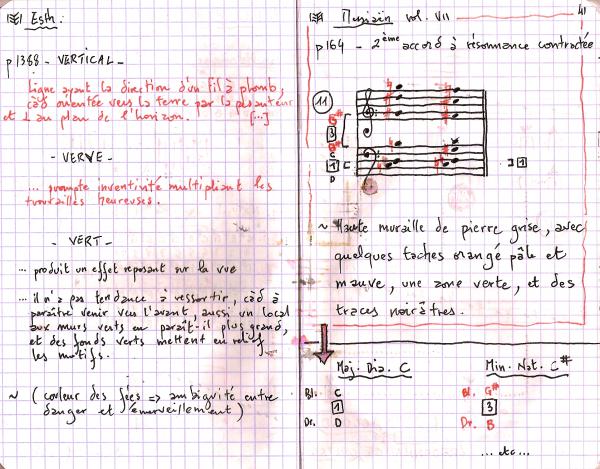 Esth:
p1388 - VERTICAL -
Ligne ayant la direction d'un fil à plomb,
càd orientée vers la terre par la pesanteur
et ⊥ au plan de l'horizon. [...]
- VERVE -
... prompte inventivité multipliant les
trouvailles heureuses.
- VERT -
... produit un effet reposant sur la vue
... il n'a pas tendance à ressortir, càd à
paraître venir vers l'avant, aussi un local
aux murs verts en paraît-il plus grand,
et des fonds verts mettent en relief
les motifs.
~ (couleur des fées => ambiguité entre
danger et émerveillement)
Messiaen vol. VII
41
p164 - 2ème accord à résonnance contractée
11
G#
3
G#
C
1
D
] 1
~ Haute muraille de pierre grise, avec
quelques taches orangé pâle et
mauve, une zone verte, et des
traces noirâtres.
Maj. Dia. C
Min. Nat. C#
Bl. C
1
Dr. D
Bl. G#
3
Dr. B
... etc...